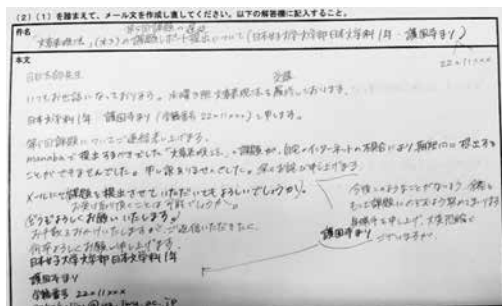 (2)(1)を踏まえて、メール文を作成し直してください。以下の解答欄に記入すること。
件名
第5回課題の
「文章表現法」(オフ)の課題レポート提出について(日本女子大学文学部日本文学科1年・護国寺まり)
22×11×××
本文
目白太郎先生
受講
いつもお世話になっております。水曜3限文章表現法を履修しております、
日本女子大学科1年 護国寺まり(学籍番号22×11×××)と申します。
第5回課題についてご連絡差し上げます。
manabaで提出するはずでした「文章表現法」の課題が、自宅のインターネットの不具合により期限内に提出する
ことができませんでした。申し訳ありませんでした。深くお詫び申し上げます
メールにて課題を提出させていただいてもよろしいでしょうか。
お受け取り頂くことは可能でしょうか。
どうぞよろしくお願いいたします。
お手数をおかけいたしますが、ご返信いただきたく
何卒よろしくお願い申し上げます。
今後このようなことがないよう、余裕を
もって課題に
大変恐縮で
ございますが、
護国寺まり
日本女子大学文学部日本文学科1年
護国寺まり
学籍番号 22×11×××
jwu.ac.jp